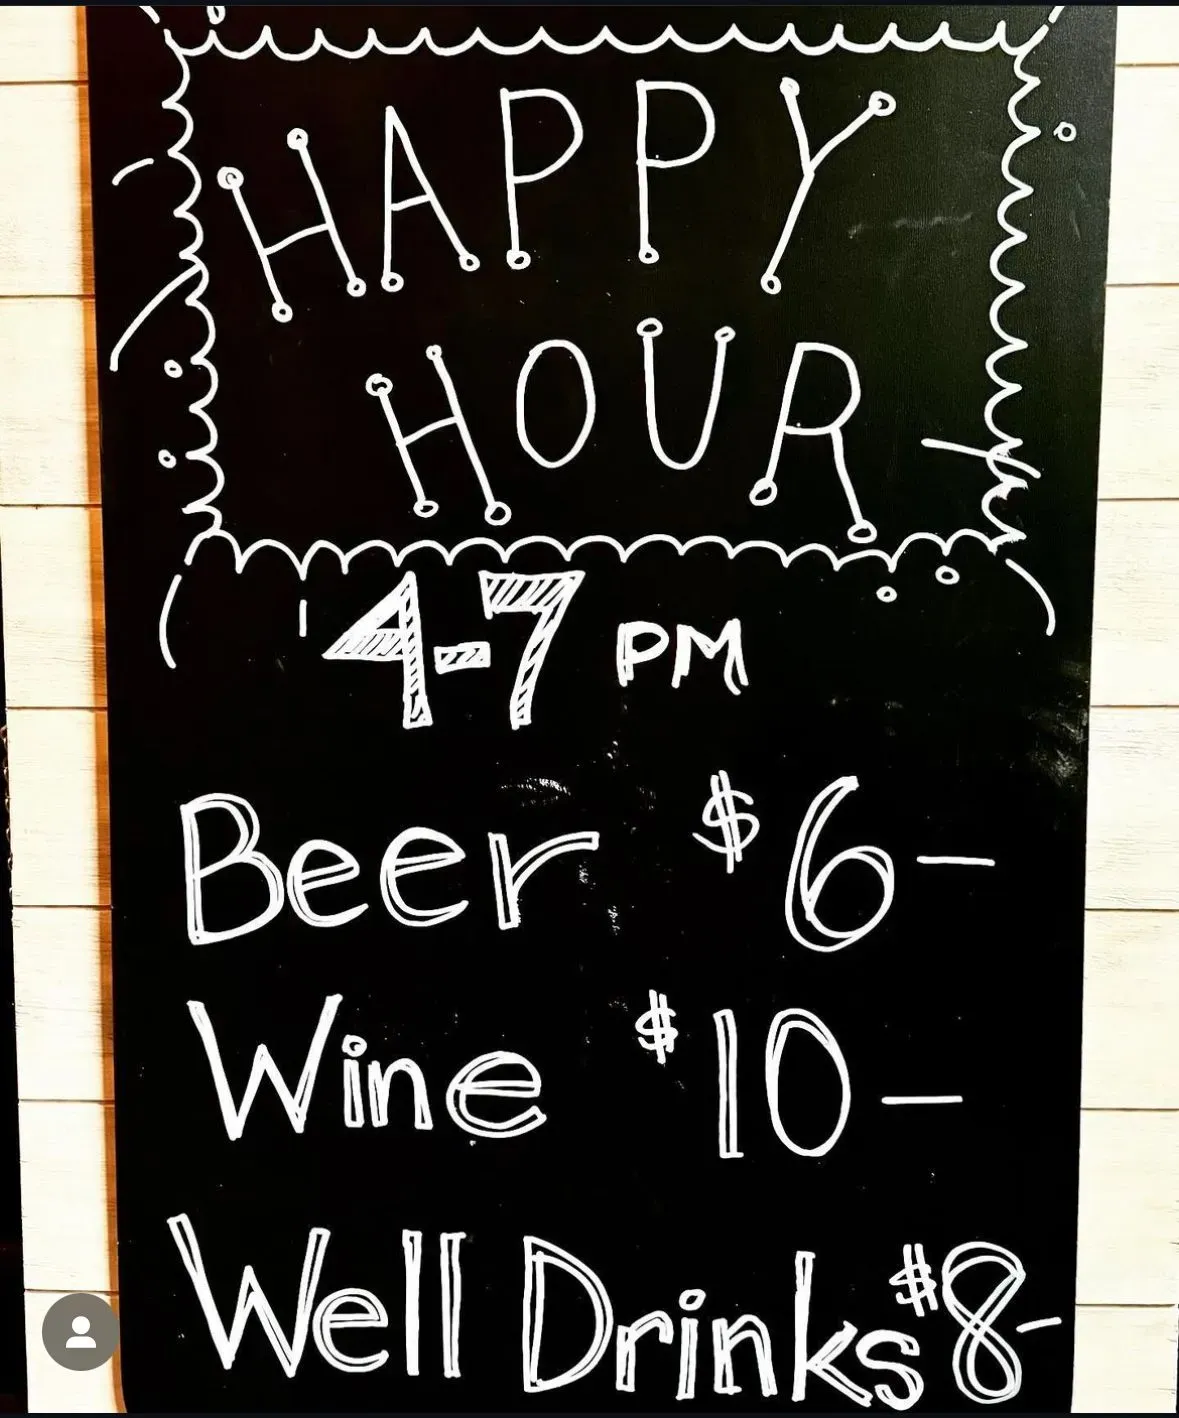 HAPPY
HOUR
4-7 PM
Beer $6-
Wine $10-
Well Drinks $8-